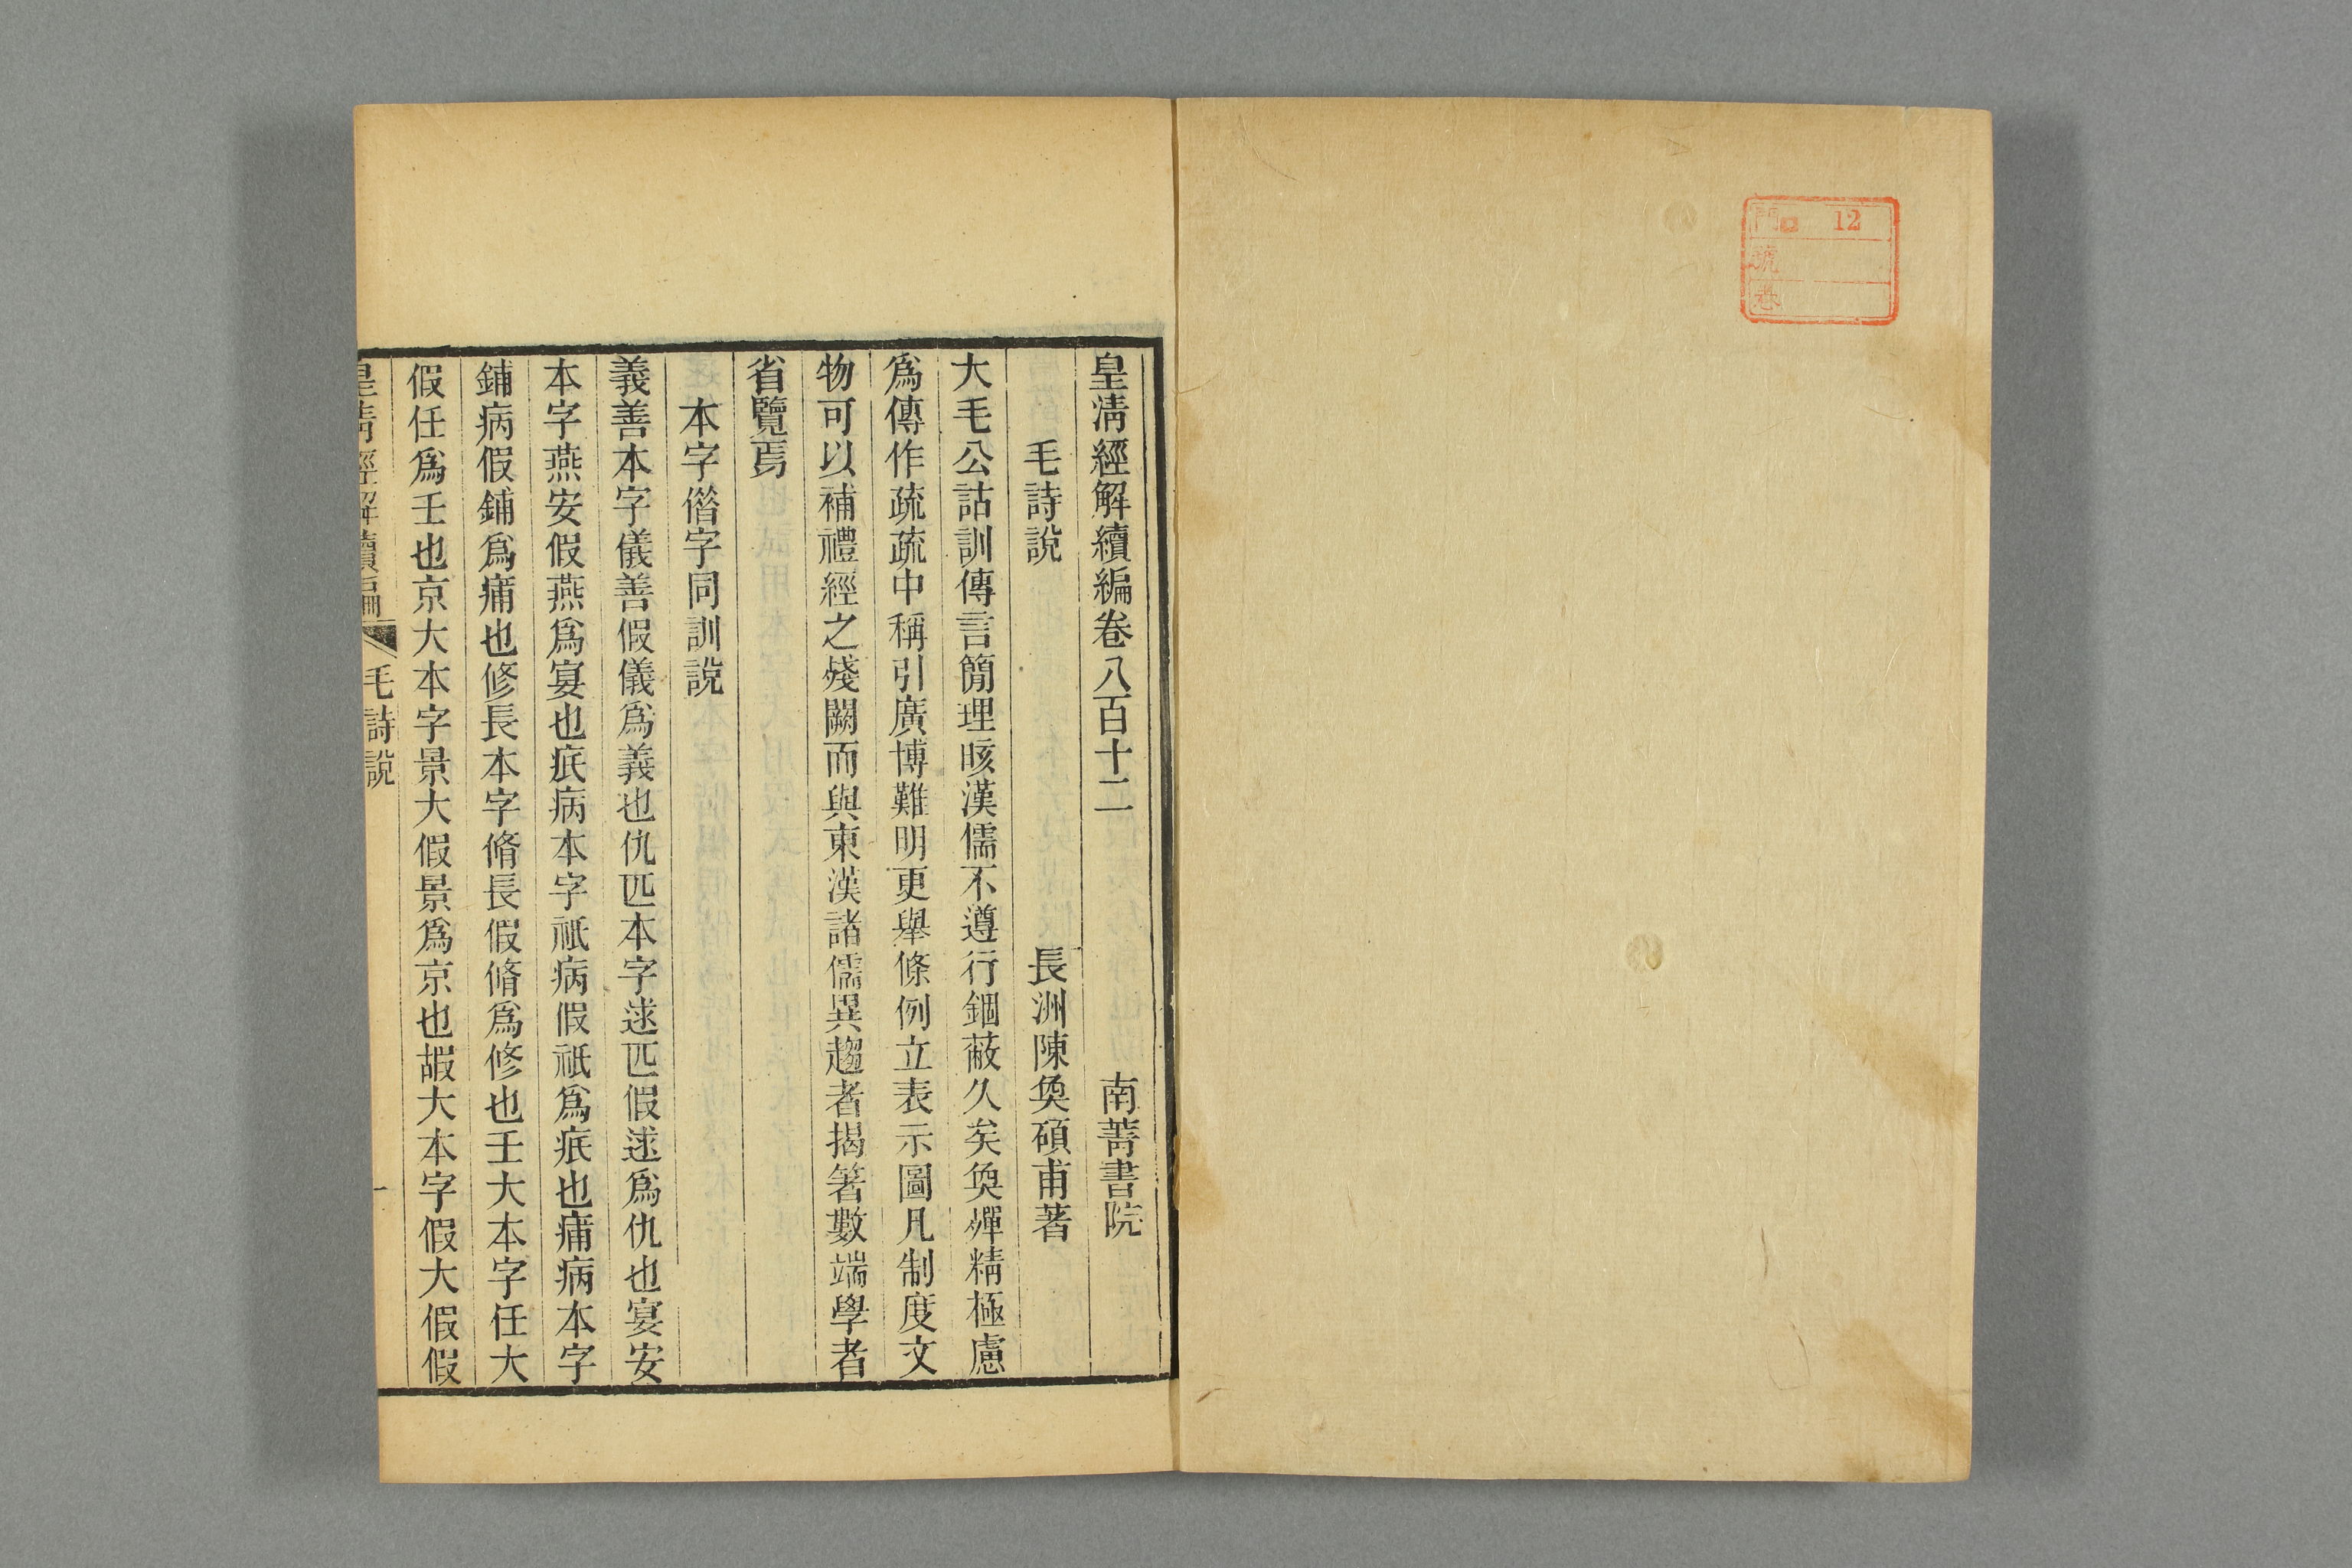 門 12
號
卷
皇淸經解續編卷八百十二 南菁書院
毛詩說 長洲陳奐碩甫著
大毛公詁訓傳言簡理晐漢儒不遵行錮蔽久矣奐殫精極慮
爲傳作疏疏中稱引廣博難明更舉條例立表示圖凡制度文
物可以補禮經之殘闕而與東漢諸儒異趨者揭箸數端學者
省覽焉
本字僣字同訓說
義善本字儀善假儀爲義也仇匹本字逑匹假逑爲仇也宴安
本字燕安假燕爲宴也疧病本字祇病假祇爲疧也痡病本字
鋪病假鋪爲痡也修長本字脩長假脩爲修也壬大本字任大
假任爲壬也京大本字景大假景爲京也嘏大本字假大假假
皇淸經解續編 毛詩說 一